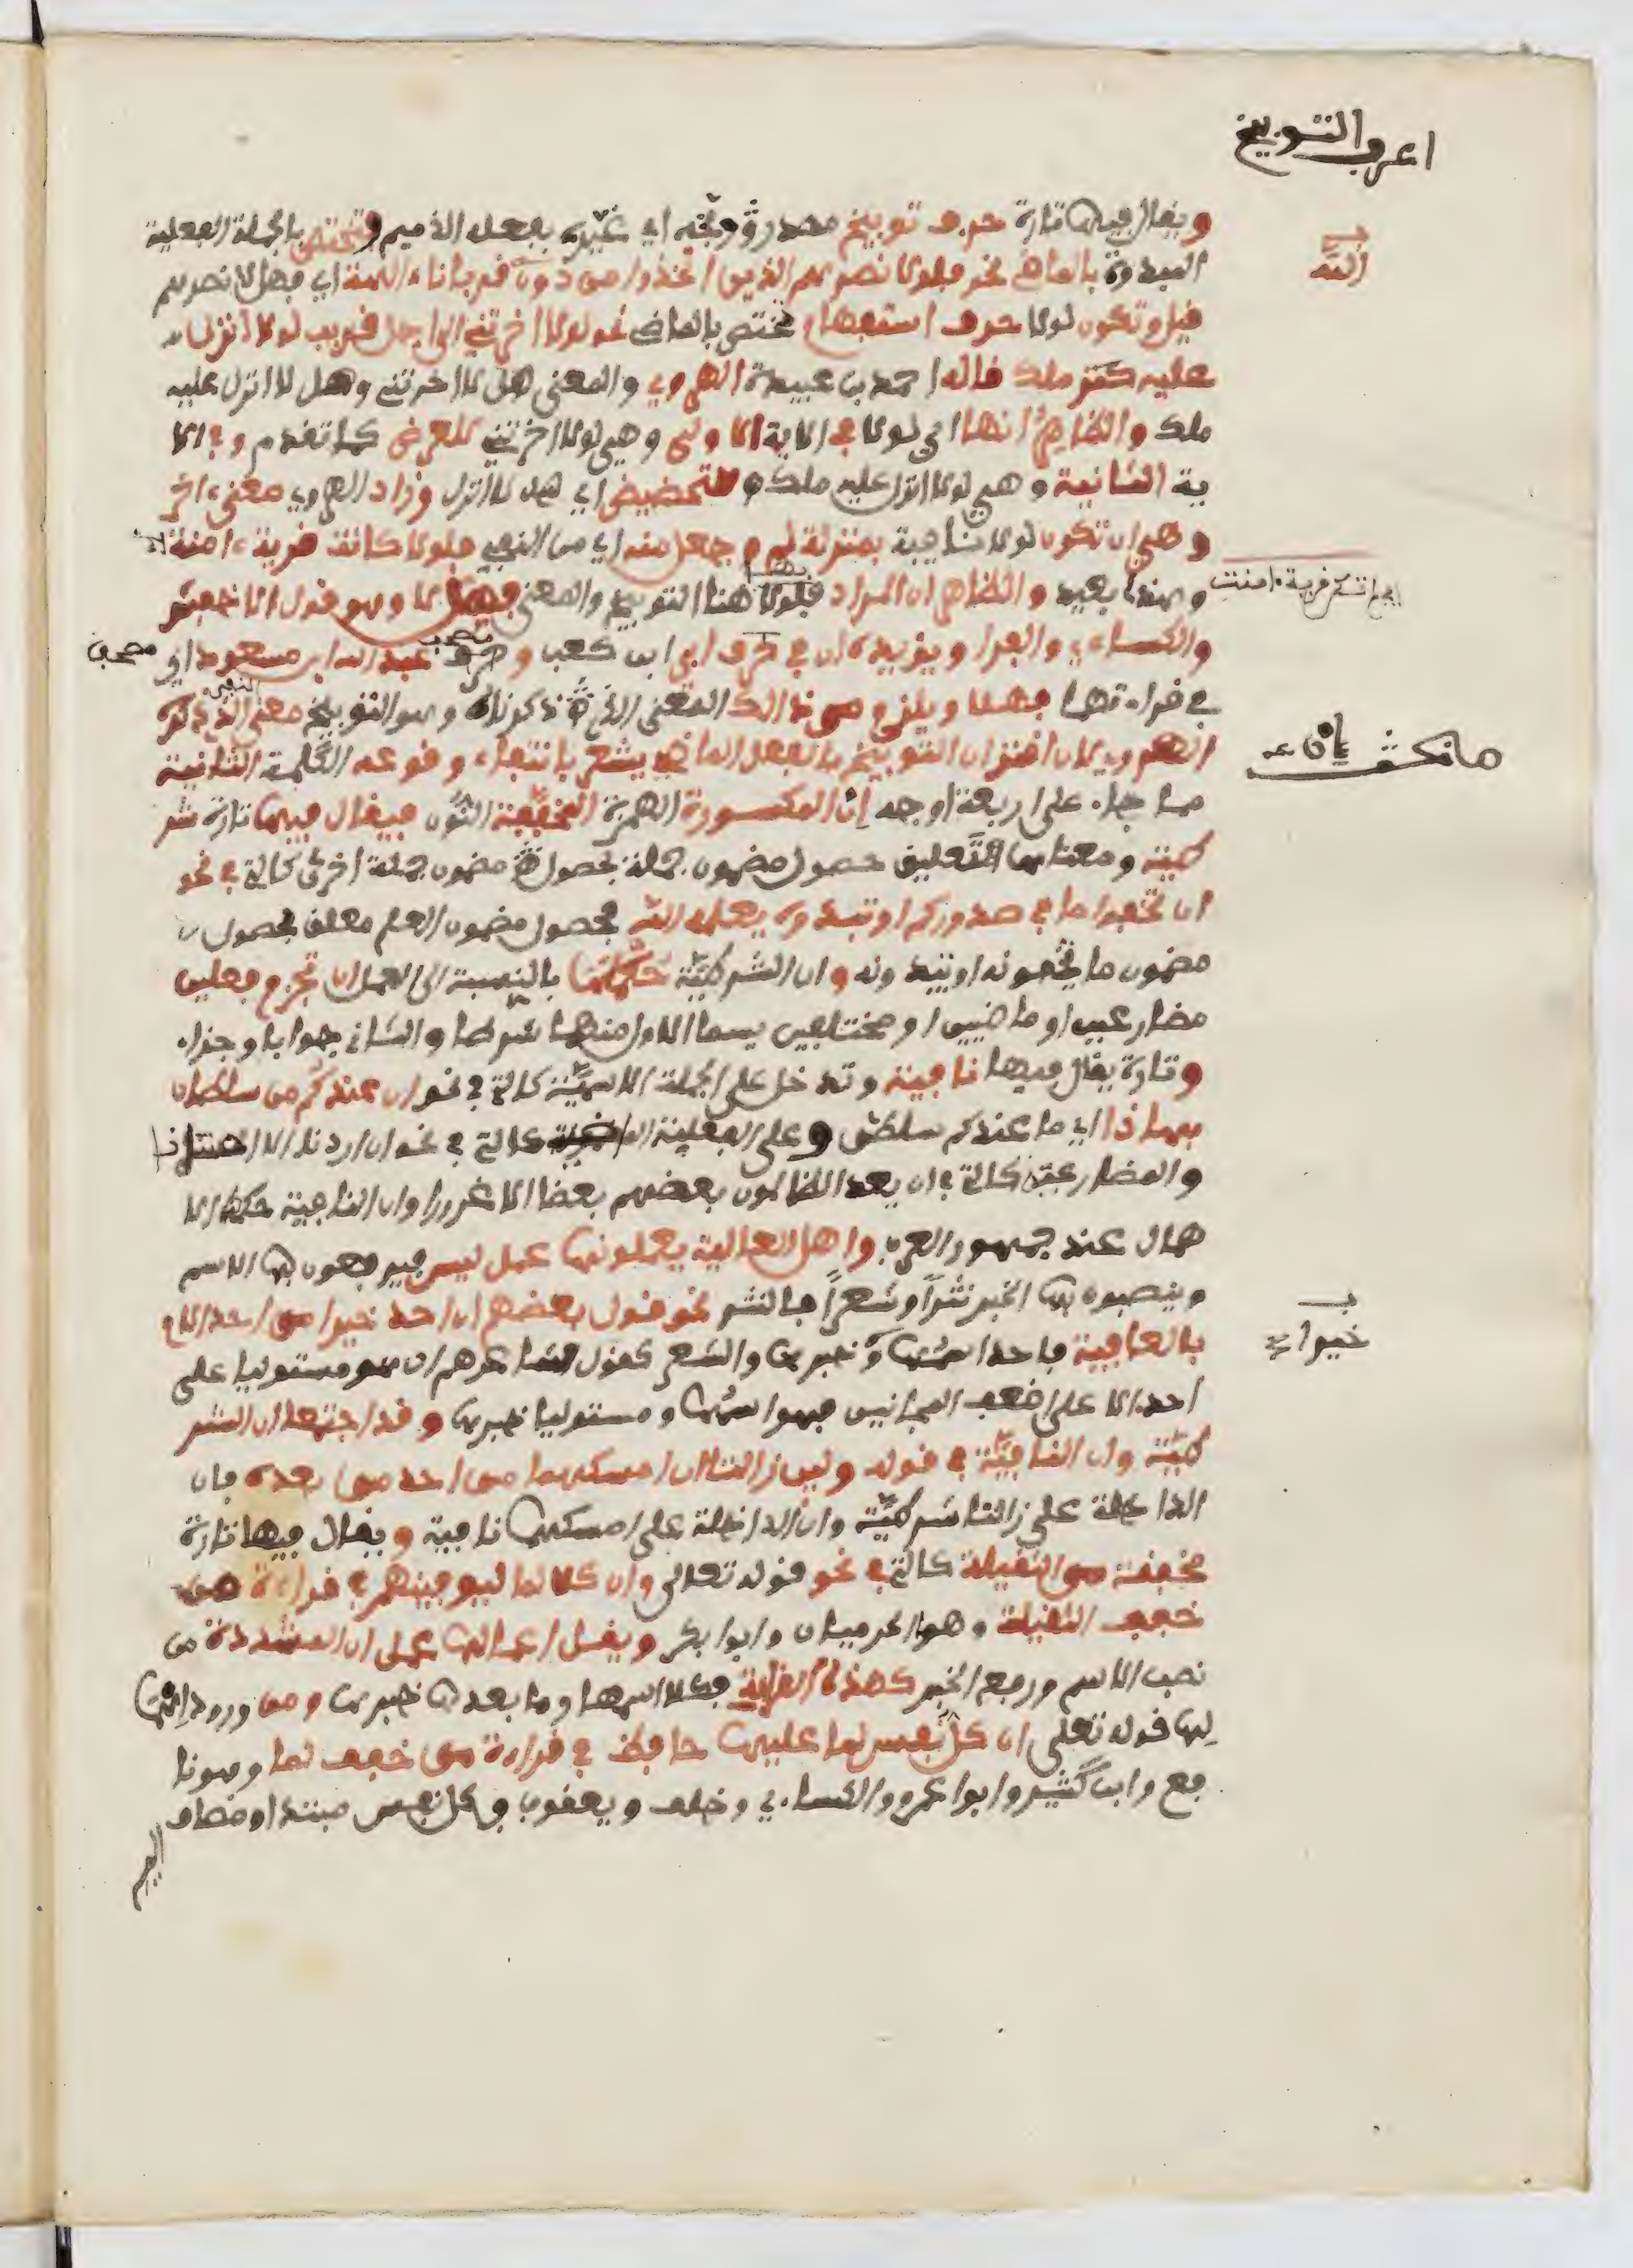 اعرف التوبيخ
ويقال فيها تارة حرف توبيخ مصدر وبخه اي عيره بفعله الذميم وتختص بالجملة الفعلية
المبدوة بالماضي نحو فلولا نصرهم الذين اتخذوا من دون الله قربانا ءالهة اي فهل لا نصرهم
الله
قيل وتكون لولا حرف استفهام تختص بالماضي نحو لولا اخرتني الى اجل قريب لولا انزل
عليه كنز ملك قاله احمد بن عبيدة الهروي والمعنى هل لا اخرتني وهل لا انزل عليه
ملك والظاهر انها اي لولا في الاية الاولى وهي لولا اخرتني للعرض كما تقدم وفي الا
ية الثانية وهي لولا انزل عليه ملك للتحضيض اي هل لا انزل وزاد الهروي معنى ءاخر
وهي ان تكون لولا نافية بمنزلة لم وجعل منه اي من النفي فلولا كانت قرية ءامنت
اي لم تكن قرية ءامنت
وهذا بعيد والظاهر ان المراد فلولا هنا التوبيخ والمعنى فهلا وهو قول الاخفش
والكساءي والفرا ويؤيده ان في حرف ابي ابن كعب وحرف عبد الله ابن مسعود اي
مصحف
في قراءتهما فهلا ويلزم من ذالك المعنى الذي ذكرناه وهو التوبيخ معنى النفي الذي ذكره
الهروي لان اقتران التوبيخ بالفعل الماضي يشعر بانتفاء وقوعه الكلمة الثانية
مما جاء على اربعة اوجه إن المكسورة الهمزة المخففة النون فيقال فيها تارة شر
طية ومعناها التعليق حصول مضمون جملة بحصول مضمون جملة اخرى كالتي في نحو
ان تخفوا ما في صدوركم او تبدوه يعلمه الله فحصول مضمون العلم معلق بحصول
مضمون ما تخفونه او تبدونه وان الشرطية حكمها بالنسبة الى العمل ان تجزم فعلين
مضارعين او ماضيين او مختلفين يسما الاول منهما شرطا والثاني جوابا وجزاء
وتارة يقال فيها نافية وتدخل على الجملة الاسمية كالتي في نحو ان عندكم من سلطان
بهاذا اي ما عندكم سلطن وعلى الفعلية الماضوية كالتي في نحو ان اردنا الا
والمضارعية كالتي في ان يعد الظالمون بعضهم بعضا الا غرورا وان النافية حكمها الا
همال عند جمهور العرب واهل العالية يعملونها عمل ليس فيرفعون بها الاسم
وينصبون بها الخبر نثرا وشعرا فالنثر نحو قول بعضهم ان احد خيرا من احد الا
خيرا
بالعافية فاحد اسمها وخبرها والشعر كقول شاعرهم ان هو مستوليا على
احد الا على اضعف المجانين فهو اسمها ومستوليا خبرها وقد اجتمعا ان الشر
طية وان النافية في قوله ولين زالتا ان امسكهما من احد من بعده فان
الداخلة على زالتا شرطية وان الداخلة على امسكهما نافية ويقال فيها تارة
مخففة من الثقيلة كالتي في نحو قوله تعالى وان كلا لما ليوفينهم في قراءة من
خفف الثقيلة وهو الحرميان وابوا بكر ويقل اعمالها عمل ان المشددة من
نصب الاسم ورفع الخبر كهذه القراءة فكلا اسمها وما بعدها خبرها ومن ورود
لها قوله تعلى ان كل نفس لما عليها حافظ في قراءة من خفف لما وهو نا
فع وابن كثير وابوا عمرو والكساءي وخلف ويعقوب فكل نفس مبتدا ومضاف
اليه